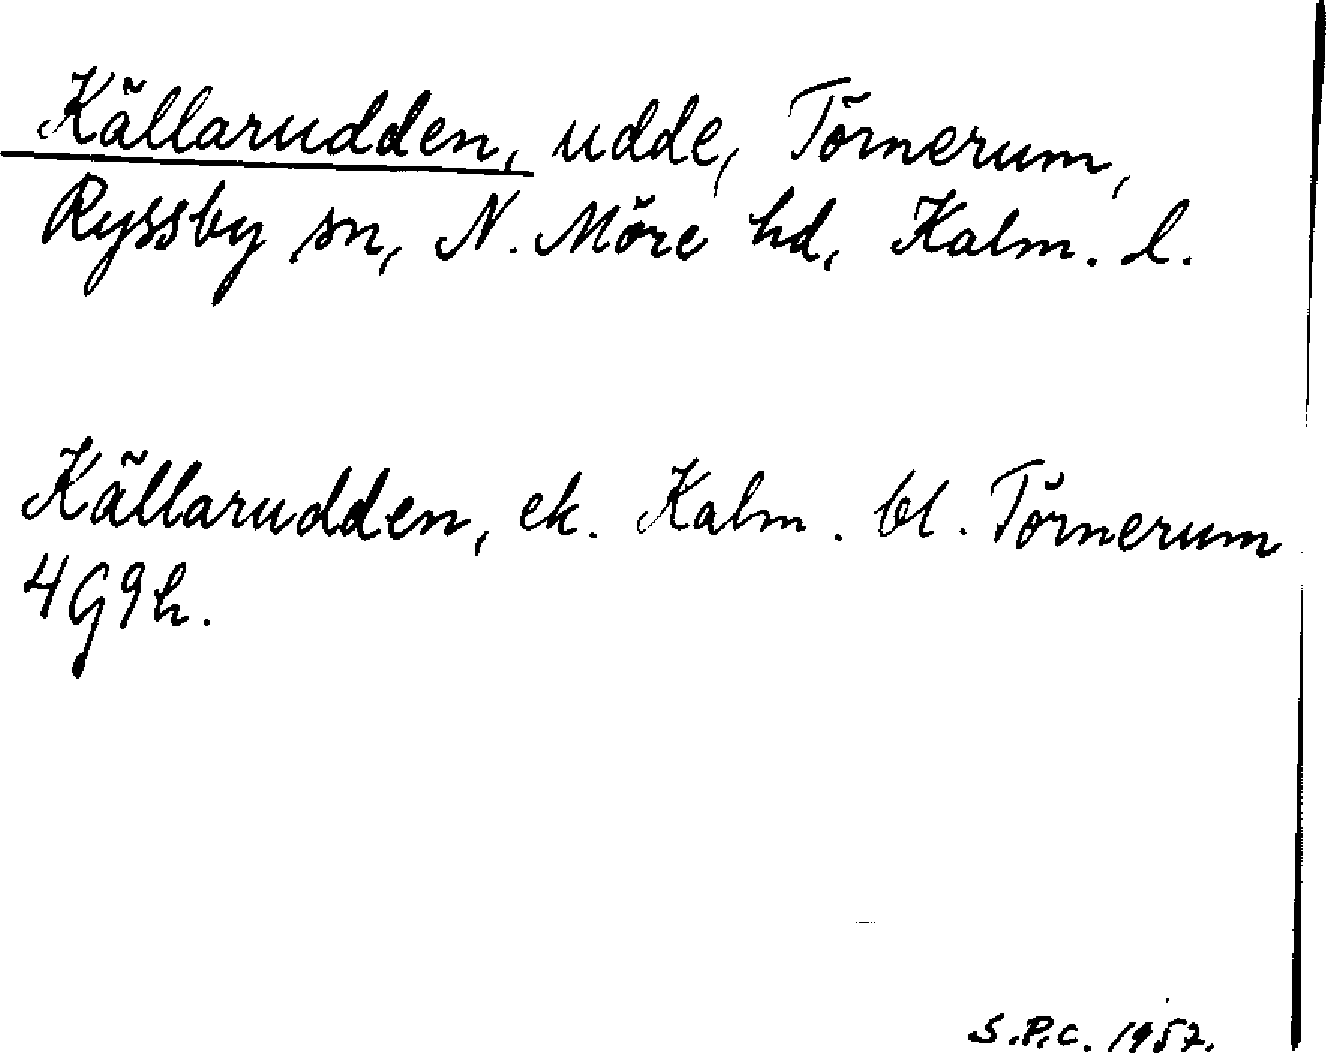 Källarudden, udde, Törnerum,
Ryssby sn, N. Möre hd, Kalm. l.
Källarudden, ek. Kalm. bl. Törnerum
4G9h.
S.P.C. 1957.